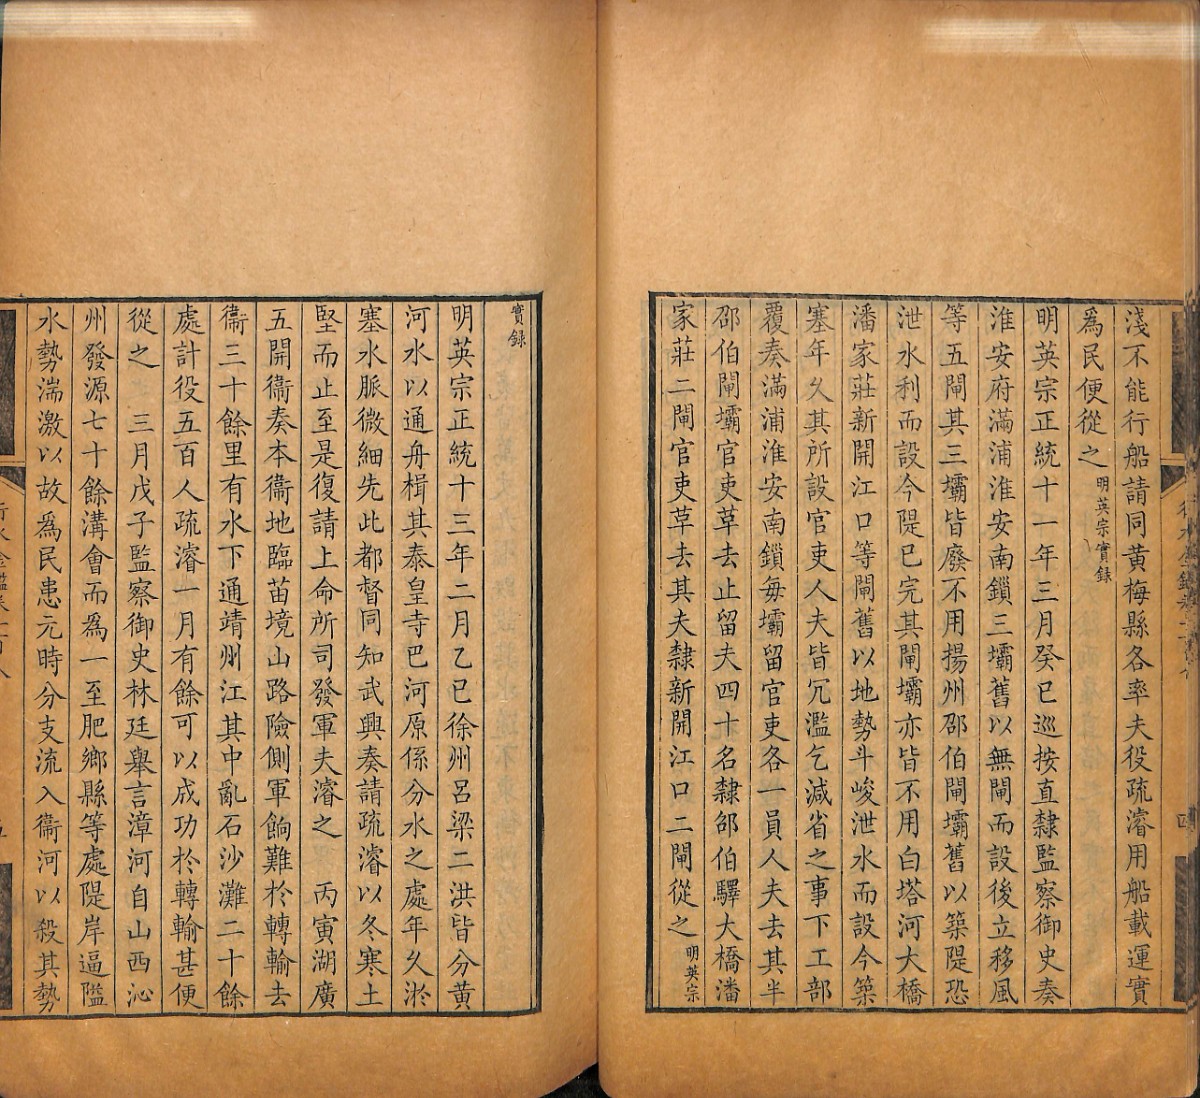 淺不能行船請同黃梅縣各率夫役疏濬用船載運實
爲民便從之明英宗實錄
明英宗正統十一年三月癸巳巡按直隸監察御史奏
淮安府滿浦淮安南鎖三壩舊以無閘而設後立移風
等五閘其三壩皆廢不用揚州邵伯閘壩舊以築隄恐
泄水利而設今隄已完其閘壩亦皆不用白塔河大橋
潘家莊新開江口等閘舊以地勢斗峻泄水而設今築
塞年久其所設官吏人夫皆冗濫乞減省之事下工部
覆奏滿浦淮安南鎖每壩留官吏各一員人夫去其半
邵伯閘壩官吏革去止留夫四十名隸邵伯驛大橋潘
家莊二閘官吏革去其夫隸新開江口二閘從之明英宗
實錄
明英宗正統十三年二月乙巳徐州呂梁二洪皆分黃
河水以通舟楫其泰皇寺巴河原係分水之處年久淤
塞水脈微細先此都督同知武興奏請疏濬以冬寒土
堅而止至是復請上命所司發軍夫濬之　丙寅湖廣
五開衞奏本衞地臨苗境山路險側軍餉難於轉輸去
衞三十餘里有水下通靖州江其中亂石沙灘二十餘
處計役五百人疏濬一月有餘可以成功於轉輸甚便
從之　三月戊子監察御史林廷舉言漳河自山西沁
州發源七十餘溝會而爲一至肥鄉縣等處隄岸逼隘
水勢湍激以故爲民患元時分支流入衞河以殺其勢